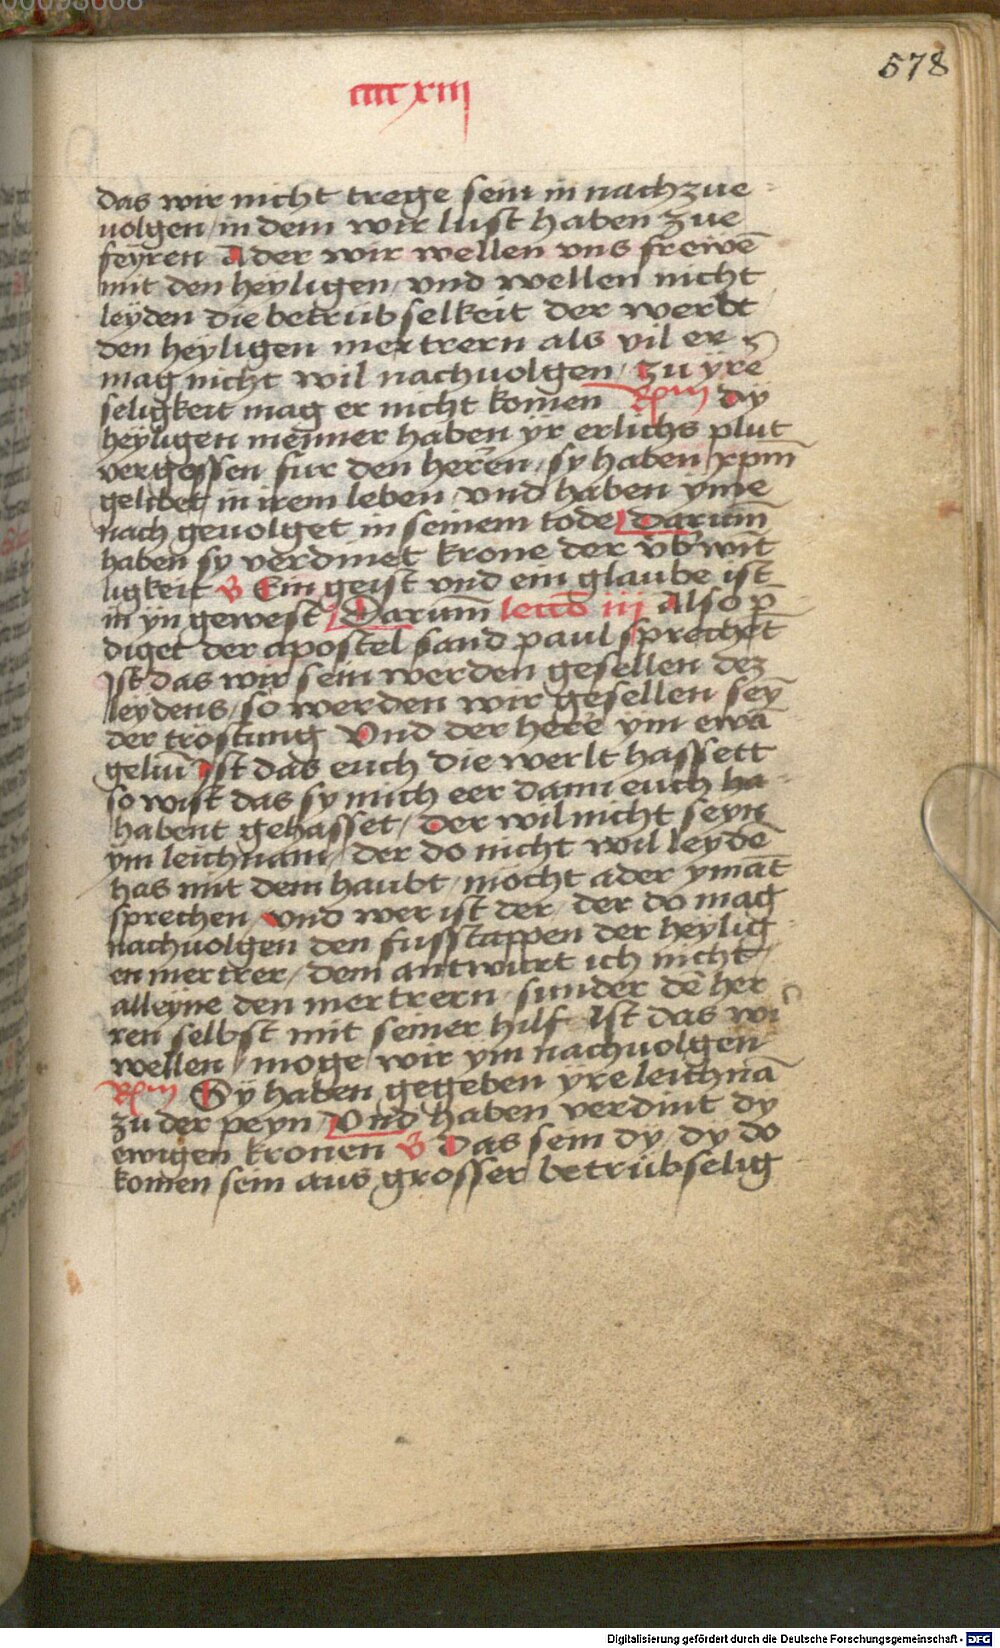 00098668
578
cccc xiii
das wir nicht trege sein in nachzue
uolgen / in dem wir lust haben zue
feÿren Ader wir wellen vns frewē
mit den heÿligen / vnd wellen nicht
leÿden die betrübselkeit der werbt
den heÿligen mertrern als vil er
mag nicht wil nachuolgen / zu ÿre
seligkeit mag er nicht komen Rm dÿ
heÿligen menner haben ÿr erlichs plut
vergossen fur den herren / sy haben xpm̄
gelibet in irem leben / vnd haben yme
nach geuolget in seinem tode Darum̄
haben sy verdinet krone der vb'wīt
ligkeit V Ein geist vnd ein glaube ist
in ÿn gewest Darum̄ leccō iij Also p̄
diget der apostel sand paul sprechēt
Ist das wir sein werden gesellen dez
leydens / so werden wir gesellen seȳ
der tröstung Vnd der here ym ewā
geliū Ist das euch die werlt hassett
so wist das sy mich eer dann euch ha
habent gehasset / der wil nicht seyn
ym leichnam / der do nicht wil leydē
has mit dem haubt / mocht ader ymāt
sprechen / vnd wer ist der / der do mag
nachuolgen den fusstappen der heylig
en mertrer / dem antwurt ich nicht
alleyne den mertrern / sunder dē her
ren selbst mit seiner hilf Ist das wi
wellen / moge wir ym nachuolgen
Rm Sÿ haben gegeben ÿre leichnā
zu der peyn / Vnd haben verdint dy
ewigen kronen V Das sein dy / dy do
komen sein aus grosser betrübselig
Digitalisierung gefördert durch die Deutsche Forschungsgemeinschaft - DFG